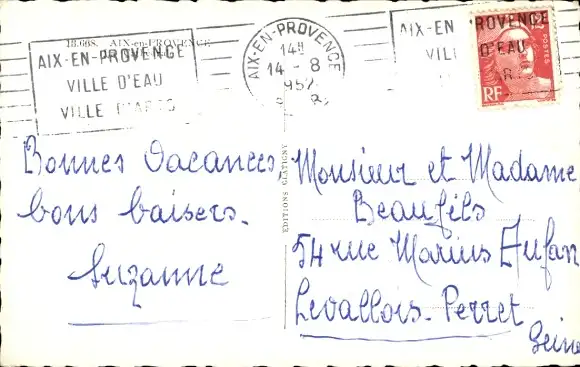 18.088. AIX-en-PROVENCE
AIX-EN-PROVENCE
VILLE D'EAU
VILLE D'ARTS
AIX-EN-PROVENCE
14H
14 - 8
1952
AIX-EN PROVENCE
VILL D'EAU
POSTES
RF
EDITIONS GLATIGNY
Bonnes Vacances,
bons baisers.
Suzanne
Monsieur et Madame
Beaufils
54 rue Marius Aufan
Levallois-Perret
Seine